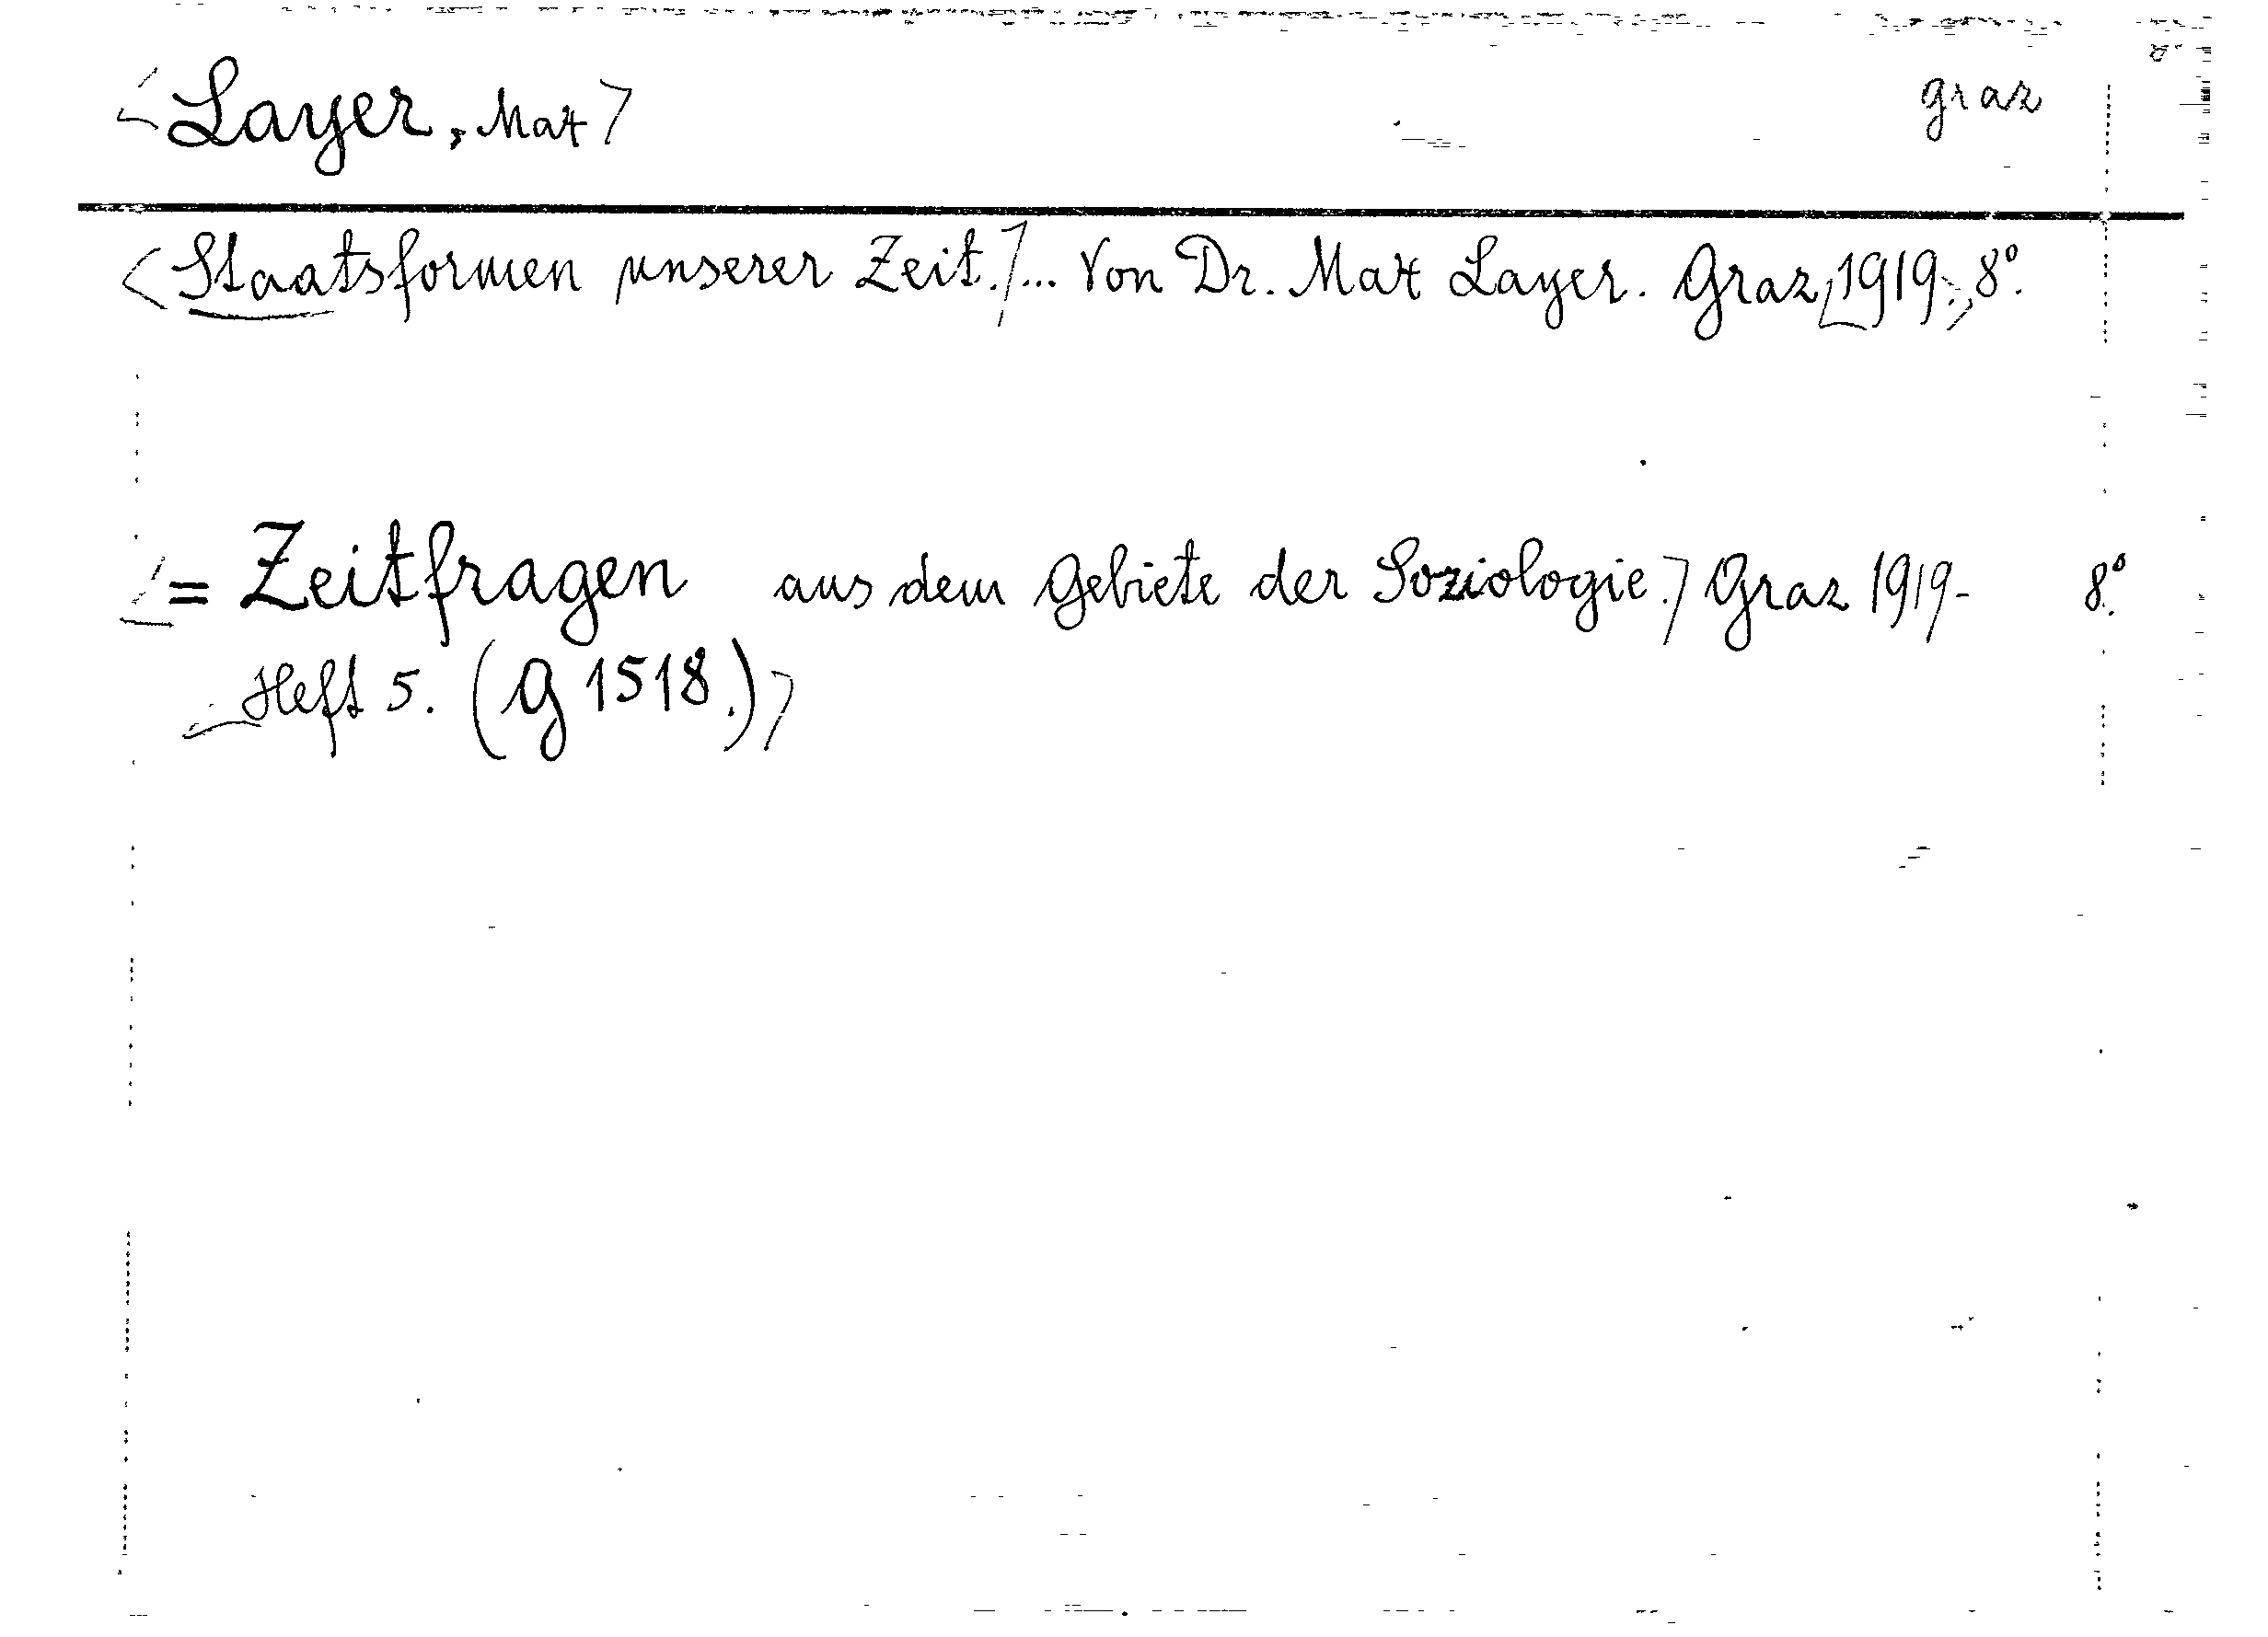 <Layer, Max> Graz
<Staatsformen unserer Zeit.>... Von Dr. Max Layer. Graz, <1919.> 8°.
<= Zeitfragen aus dem Gebiete der Soziologie.> Graz 1919- 8°.
<Heft 5. (G 1518.)>